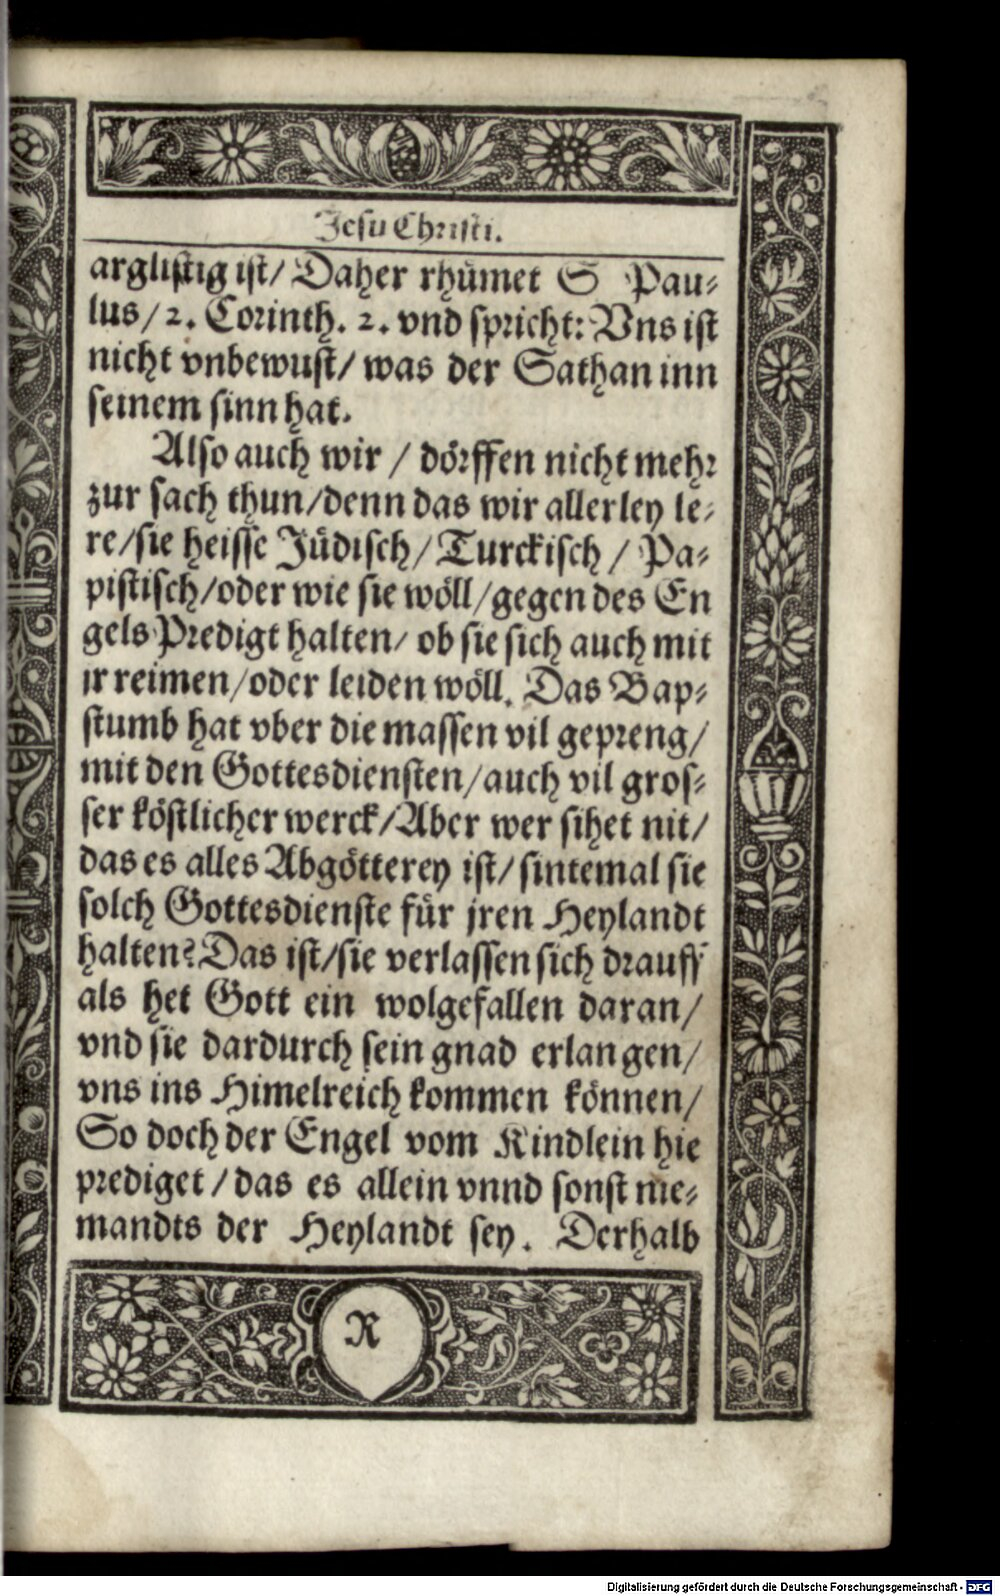 Jesu Christi.
arglistig ist/ Daher rhümet S Pau-
lus/ 2. Corinth. 2. vnd spricht: Vns ist
nicht vnbewust/ was der Sathan inn
seinem sinn hat.
Also auch wir / dörffen nicht mehr
zur sach thun/denn das wir allerley le-
re/sie heisse Jüdisch/ Turckisch / Pa-
pistisch/oder wie sie wöll/gegen des En
gels Predigt halten/ ob sie sich auch mit
ir reimen/oder leiden wöll. Das Bap-
stumb hat vber die massen vil gepreng/
mit den Gottesdiensten/auch vil gros-
ser köstlicher werck/Aber wer sihet nit/
das es alles Abgötterey ist/ sintemal sie
solch Gottesdienste für jren Heylandt
halten? Das ist/sie verlassen sich drauff
als het Gott ein wolgefallen daran/
vnd sie dardurch sein gnad erlangen/
vns ins Himelreich kommen können/
So doch der Engel vom Kindlein hie
prediget / das es allein vnnd sonst nie-
mandts der Heylandt sey. Derhalb
R
Digitalisierung gefördert durch die Deutsche Forschungsgemeinschaft - DFG